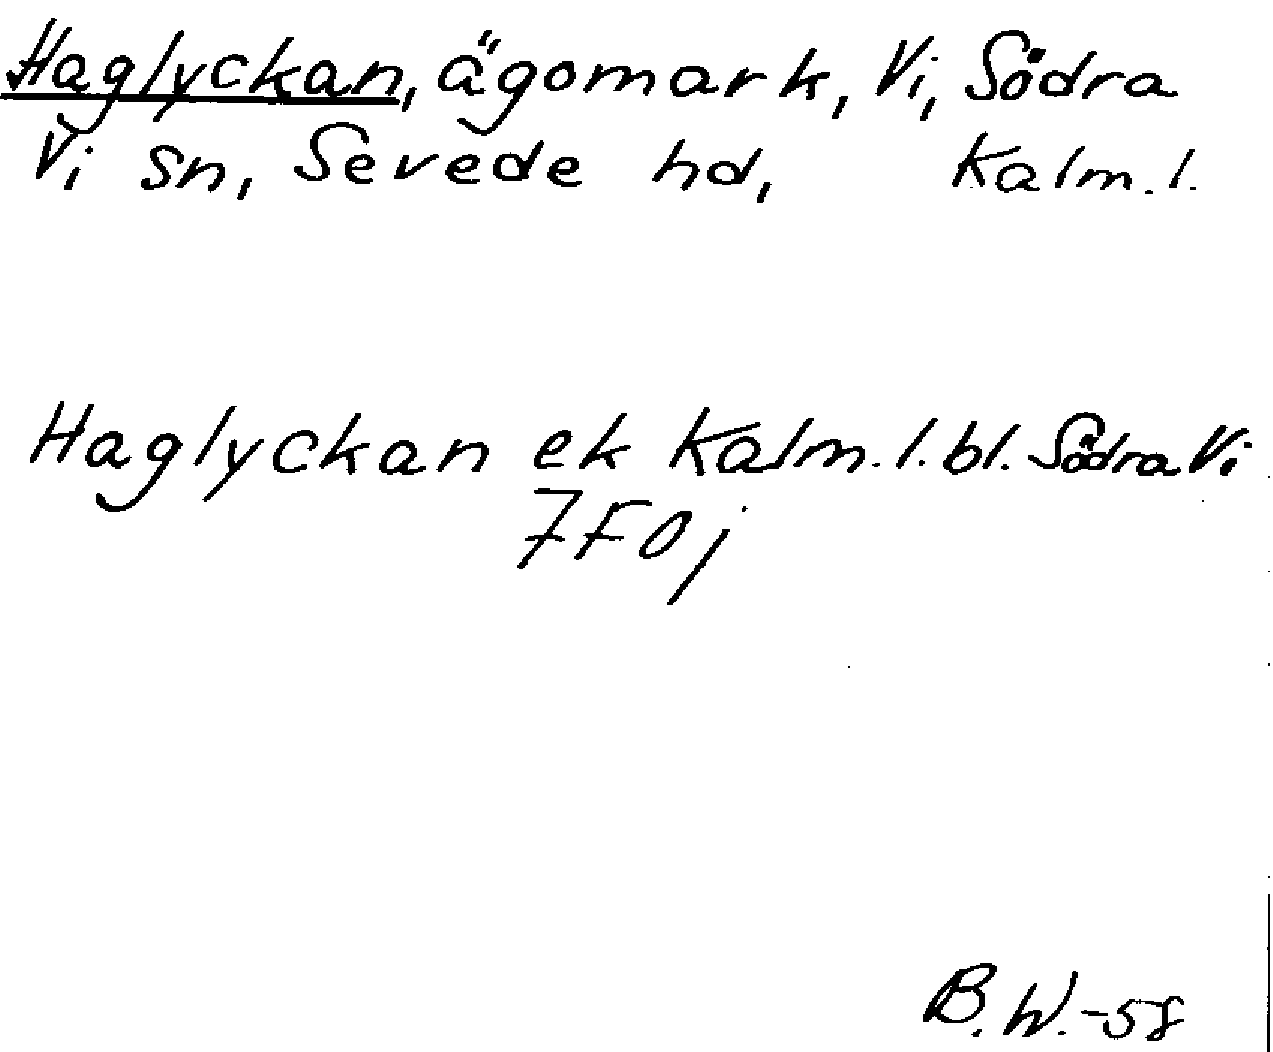 Haglyckan, ägomark, Vi, Södra
Vi sn, Sevede hd, Kalm. l.
Haglyckan ek Kalm. l. bl. Södra Vi
7F0j
B. W. -58